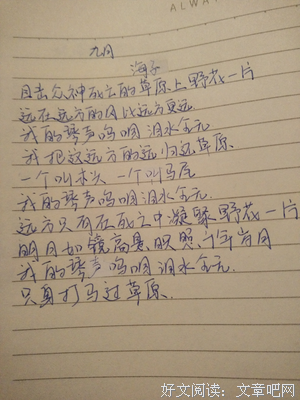 ALWA
九月
海子
目击众神死亡的草原上野花一片
远在远方的风比远方更远
我的琴声呜咽 泪水全无
我把这远方的远归还草原
一个叫木头 一个叫马尾
我的琴声呜咽 泪水全无
远方只有在死亡中凝聚野花一片
明月如镜高悬映照千年岁月
我的琴声呜咽 泪水全无
只身打马过草原
好文阅读：文章吧网